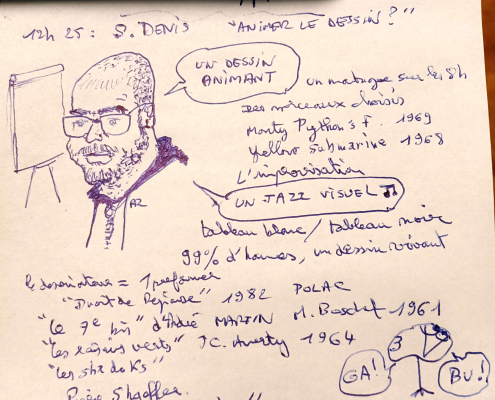 12h 25 : S. DENIS "ANIMER LE DESSIN ?"
UN DESSIN
ANIMANT
on m sur les 8h
des morceaux choisis
Monty Python's F. 1969
Yellow submarine 1968
L'improvisation
UN JAZZ VISUEL
AZ
tableau blanc / tableau noir
99% d'hommes, un dessin vivant
le dessinateur = 1 performer
"Droit de Réponse" 1982 POLAC
"Le 7e bis" d'André MARTIN M. Boschet 1961
"Les raisins verts" JC. Averty 1964
"les shadoks"
Pierre Shaeffer.
3
GA!
BU!